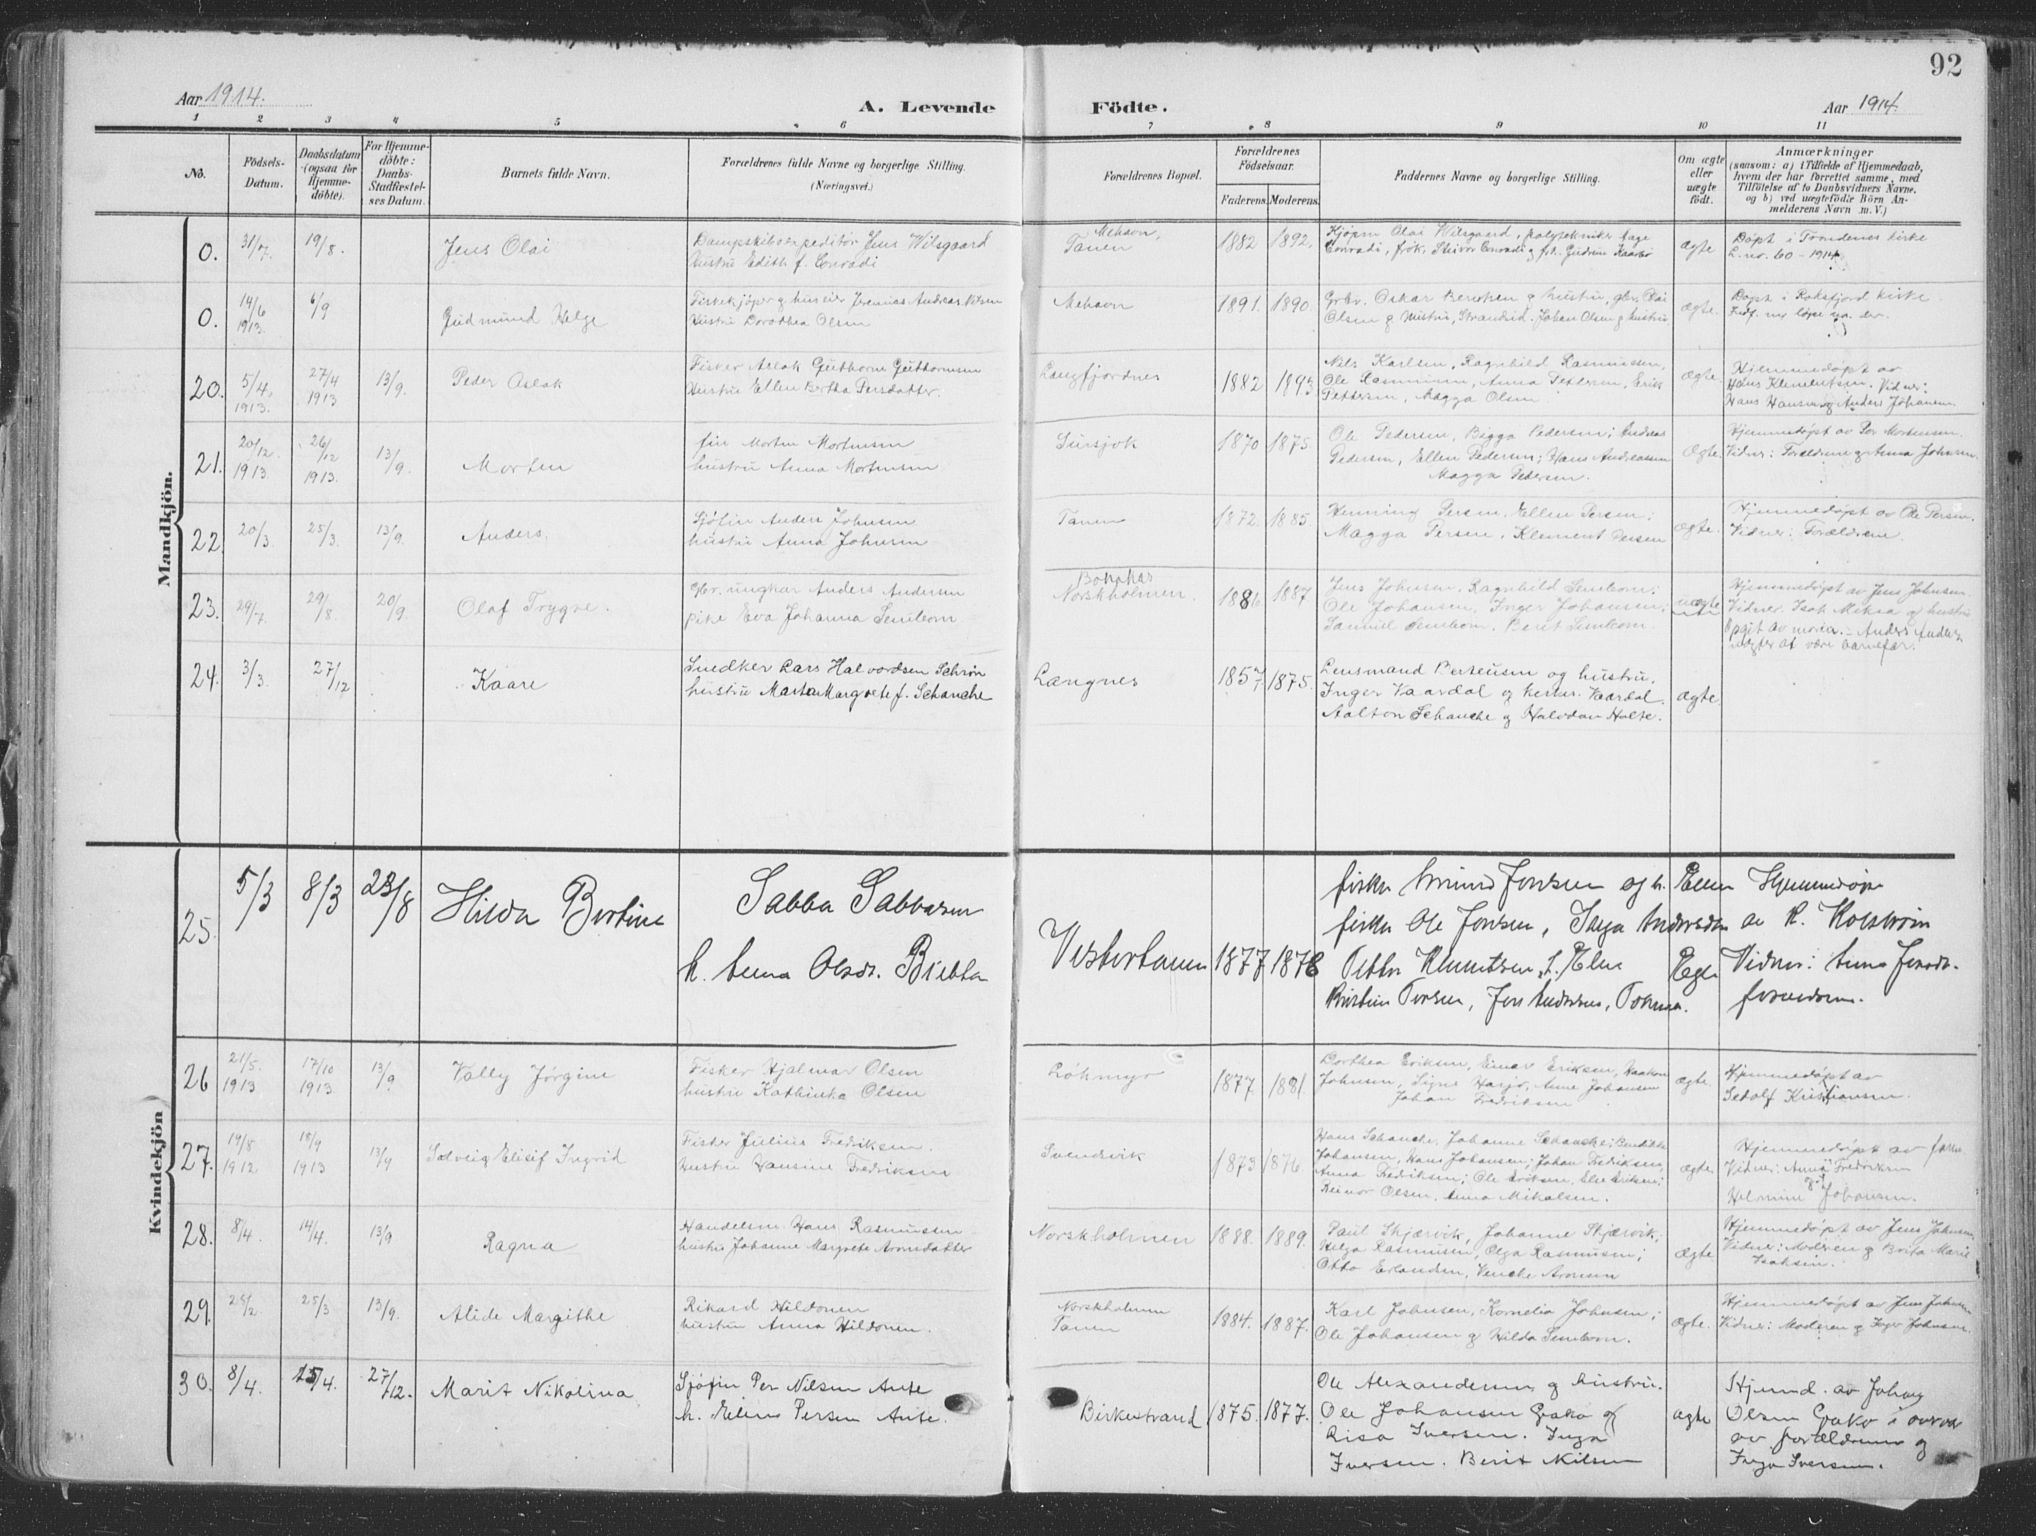 92
Aar 1914.
A. Levende Födte.
Aar 1914.
1 2 3 4 5 6 7 8 9 10 11
No.
Födsels-Datum.
Daabsdatum (ogsaa for Hjemme-döbte).
For Hjemme-döbte: Daabs-Stadfæstel-ses Datum.
Barnets fulde Navn.
Forældrenes fulde Navne og borgerlige Stilling.
(Næringsvei.)
Forældrenes Bopæl.
Forældrenes Födselsaar.
Faderens. Moderens.
Faddernes Navne og borgerlige Stilling.
Om ægte eller uægte födt.
Anmærkninger
(saasom: a) i Tilfælde af Hjemmedaab,
hvem der har forrettet samme, med
Tilföielse af to Daabsvidners Navne,
og b) ved uægtefödte Börn An-
melderens Navn m. V.)
Mandkjön.
0. 31/7. 19/8. Jens Olai
Dampskibsexpeditör Jens Wilsgaard
Hustru Edith f. Conradi
Mehavn, Tanen
1882 1892.
Kjöpm Olai Wilsgaard, polytekniker Aage
Conradi, frök. Conradi g frk. Gudrun Kaarbö
ægte
Döpt i Trondenes kirke
L. no. 60 - 1914.
0. 14/6 1913. 6/9 Gudmund Helge
Fiskekjöper g huseier Jeremias Andreas Olsen
Hustru Dorothea Olsen
Mehavn
1891. 1890
Grbr. Oskar Berntsen g hustru, gbr. Olai
Olsen g Hustru, Strandsid. Johan Olsen g hustru
ægte.
Döpt i kirke
20. 5/4. 1913. 27/4 1913 13/9. Peder Aslak
Fisker Aslak Guthorm Guthormsen
Hustru Ellen Bertha Persdatter.
Langfjordnes
1882 1893
Nils Karlsen, Ragnhild Rasmussen,
Ole Rasmussen, Anna Pettersen, Erik
Pettersen, Magga Olsen
ægte.
Hjemmedöpt av
Hans Klementsen. Vidner:
Hans Hansen og Anders Johansen
21. 20/12. 1913. 26/12 1913. 13/9. Morten
fin Morten Mortensen
hustru Anna Mortensen
Sursjok
1870 1875
Ole Pedersen, Bigga Pedersen; Andreas
Pedersen, Ellen Pedersen; Hans Andreassen
Magga Pedersen.
Ægte
Hjemmedöpt av Per Mortensen.
Vidner: Forældrene g Anna Johnsen.
22. 20/3. 25/3. 13/9. Anders.
Sjöfin Anders Johnsen
hustru Anna Johnsen
Tanen
1872. 1885
Henning Persen, Ellen Persen;
Magga Persen, Klement Persen
ægte.
Hjemmedöpt av Ole Persen.
Vidner: Forældrene.
23. 29/7. 29/8. 20/9. Olaf Trygve.
Gbr. ungkar Anders Andersen
pike Eva Johanna Semleborn
Norskholmen.
1886. 1887
Jens Johnsen, Ragnhild
Ole Johansen, Inger Johansen;
Samuel Berit
uægte
Hjemmedöpt av Jens Johnsen
Vidner: Isak Miksa og hustru
Opgit av moren. - Anders Anders
nægter at være barnefar.
24. 3/3. 27/12 Kaare
Snedker Lars Halvordsen Schrön
hustru Marta Margrete f. Schanche
Langnes
1857 1875.
Lensmand Berteusen og hustru.
Inger Vaardal og herm. Vaardal.
Aalton Schanche g Halvdan Holte.
ægte.
Kvindekjön
25. 5/3 8/3 23/8 Hilda Bertine
Sabba Sabbasen
h. Anna Olsdr. Biebba
Vestertanen
1877 1878
fisker Amund Jonsen og h. Ellen
fisker Ole Jonsen, Inga Andersdtr
Petter Klemetsen, f. Elen
Kristine Torsen, Jon Andersen,
Egte
Hjemmedöpt
av K. Kolström
Vidner: Anna Jonsdr.
forældrene.
26 21/5. 1913 17/10 1913 13/9 Vally Jörgine
Fisker Hjalmar Olsen
hustru Kathinka Olsen
Lökmyr
1877. 1881.
Dorthea Eriksen, Einar Eriksen, Haakon
Johnsen, Signe Johansen
Johan Fredriksen
ægte.
Hjemmedöpt av
Sedolf Kristiansen.
27. 19/8 1912 18/9 1913 13/9 Solveig Elisif Ingrid
Fisker Julius Fredriksen.
Hustru Hansine Fredriksen
Svendsvik
1873 1876.
Hans Schanche, Johanne Schanche; Bendikte
Johansen, Hans Johansen; Johan Fredriksen,
Anna Fredriksen; Ole Eriksen, Elen Eriksen;
Reinor Olsen, Anna Mikalsen.
ægte
Hjemmedöpt av faren
Vidner: Anna Fredriksen
Helmine Johansen.
28. 8/4. 14/4. 13/9 Ragna
Handelsm. Hans Rasmussen
hustru Johanne Margrete Aronsdatter
Norskholmen
1888. 1889.
Paul Skjærvik, Johanne Skjærvik;
Helga Rasmussen, Olga Rasmussen;
Otto Erlandsen, Venche Aronsen
ægte
Hjemmedöpt av Jens Johnsen
Vidner: Moderen g Berta Marie
Isaksen.
29. 25/2. 25/3 13/9. Alide Margithe
Rikard Hildonen
hustru Anna Hildonen.
Norskholmen
Tanen
1884. 1887.
Karl Johnsen, Kornelia Johnsen;
Ole Johansen g Hilda
ægte.
Hjemmedöpt av Jens Johnsen
Vidner: Moderen g Inger Johnsen.
30. 8/4. 25/4. 27/12. Marit Nikolina
Sjöfin Per Nilsen Ante
h. Elen Persen Ante.
Birkestrand
1875. 1877.
Ole Alexandersen g hustru.
Ole Johansen Gakko og
Risa Iversen. Inga
Iversen. Berit Nilsen
ægte
Hjemd. av Johan
Olsen Gakko i overvær
av forældrene g
Inga Iversen.